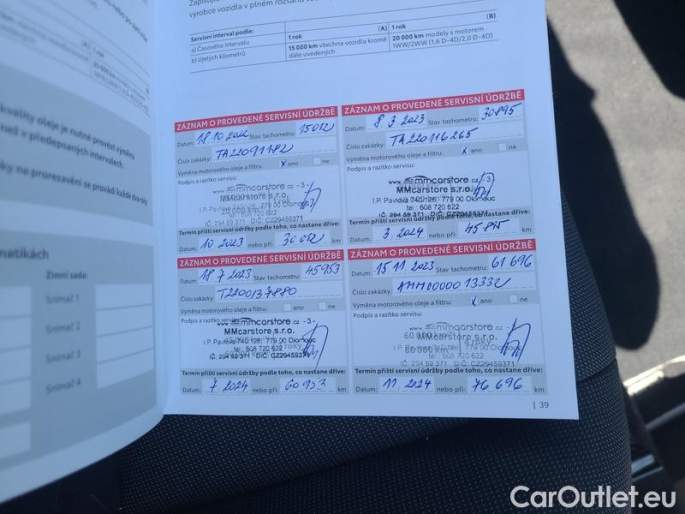 výrobce vozidla v plném rozsahu
Servisní interval podle:
[A]
[B]
1 rok
1 rok
a) Časového intervalu
b) Ujetých kilometrů
15 000 km všechna vozidla kromě
dále uvedených
20 000 km modely s motorem
1WW/2WW (1,6 D-4D/2,0 D-4D)
kvality oleje je nutné provést výměnu
než v předepsaných intervalech.
ky na prorezavění se provádí každé dva roky
matikách
Zimní sada:
Snímač 1
Snímač 2
Snímač 3
Snímač 4
ZÁZNAM O PROVEDENÉ SERVISNÍ ÚDRŽBĚ
Datum: 18 10 2022 Stav tachometru: 15012
Číslo zakázky: TA22091182
Výměna motorového oleje a filtru: x ano ne
Podpis a razítko servisu:
www.mmcarstore.cz -3-
MMcarstore s.r.o.
I.P. Pavlova 740/126, 779 00 Olomouc
tel.: 608 720 622
IČ: 294 59 371 DIČ: CZ29459371
Termín příští servisní údržby podle toho, co nastane dříve:
Datum: 10 2023 nebo při: 30 012 km
ZÁZNAM O PROVEDENÉ SERVISNÍ ÚDRŽBĚ
Datum: 8 3 2023 Stav tachometru: 30895
Číslo zakázky: TA220116265
Výměna motorového oleje a filtru: x ano ne
Podpis a razítko servisu:
www.mmcarstore.cz -3-
MMcarstore s.r.o.
I.P. Pavlova 740/126, 779 00 Olomouc
tel.: 608 720 622
IČ: 294 59 371 DIČ: CZ29459371
Termín příští servisní údržby podle toho, co nastane dříve:
Datum: 3 2024 nebo při: 45 895 km
ZÁZNAM O PROVEDENÉ SERVISNÍ ÚDRŽBĚ
Datum: 18 7 2023 Stav tachometru: 45953
Číslo zakázky: T2200137880
Výměna motorového oleje a filtru: ano ne
Podpis a razítko servisu:
www.mmcarstore.cz -3-
MMcarstore s.r.o.
I.P. Pavlova 740/126, 779 00 Olomouc
tel.: 608 720 622
IČ: 294 59 371 DIČ: CZ29459371
Termín příští servisní údržby podle toho, co nastane dříve:
Datum: 7 2024 nebo při: 60 953 km
ZÁZNAM O PROVEDENÉ SERVISNÍ ÚDRŽBĚ
Datum: 15 11 2023 Stav tachometru: 61 696
Číslo zakázky:
Výměna motorového oleje a filtru: x ano ne
Podpis a razítko servisu:
www.mmcarstore.cz -3-
MMcarstore s.r.o.
I.P. Pavlova 740/126, 779 00 Olomouc
tel.: 608 720 622
IČ: 294 59 371 DIČ: CZ29459371
Termín příští servisní údržby podle toho, co nastane dříve:
Datum: 11 2024 nebo při: 76 696 km
| 39
CarOutlet.eu